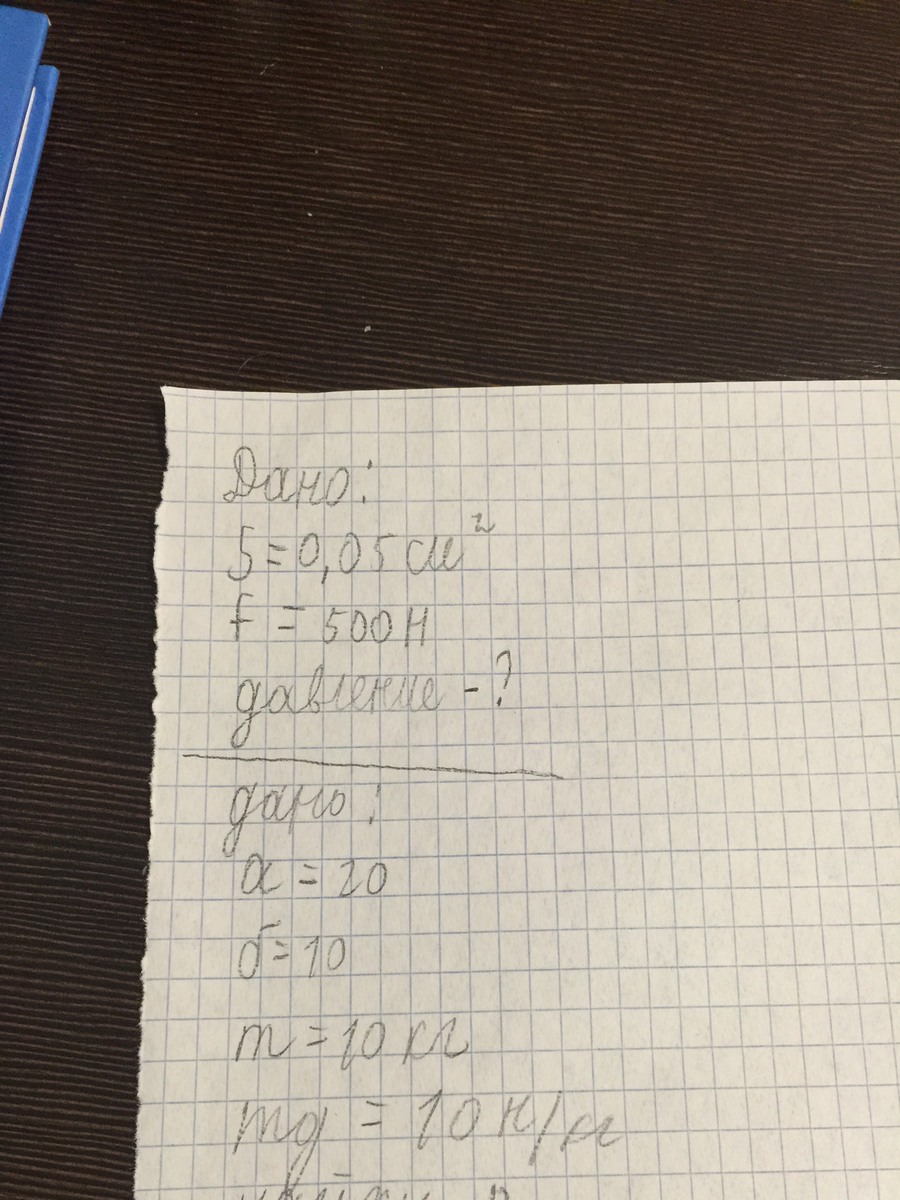 Дано:
S=0,05 см²
F = 500 Н
давление -?
дано:
а = 20
б=10
m =10 кг
mg = 10 н/кг